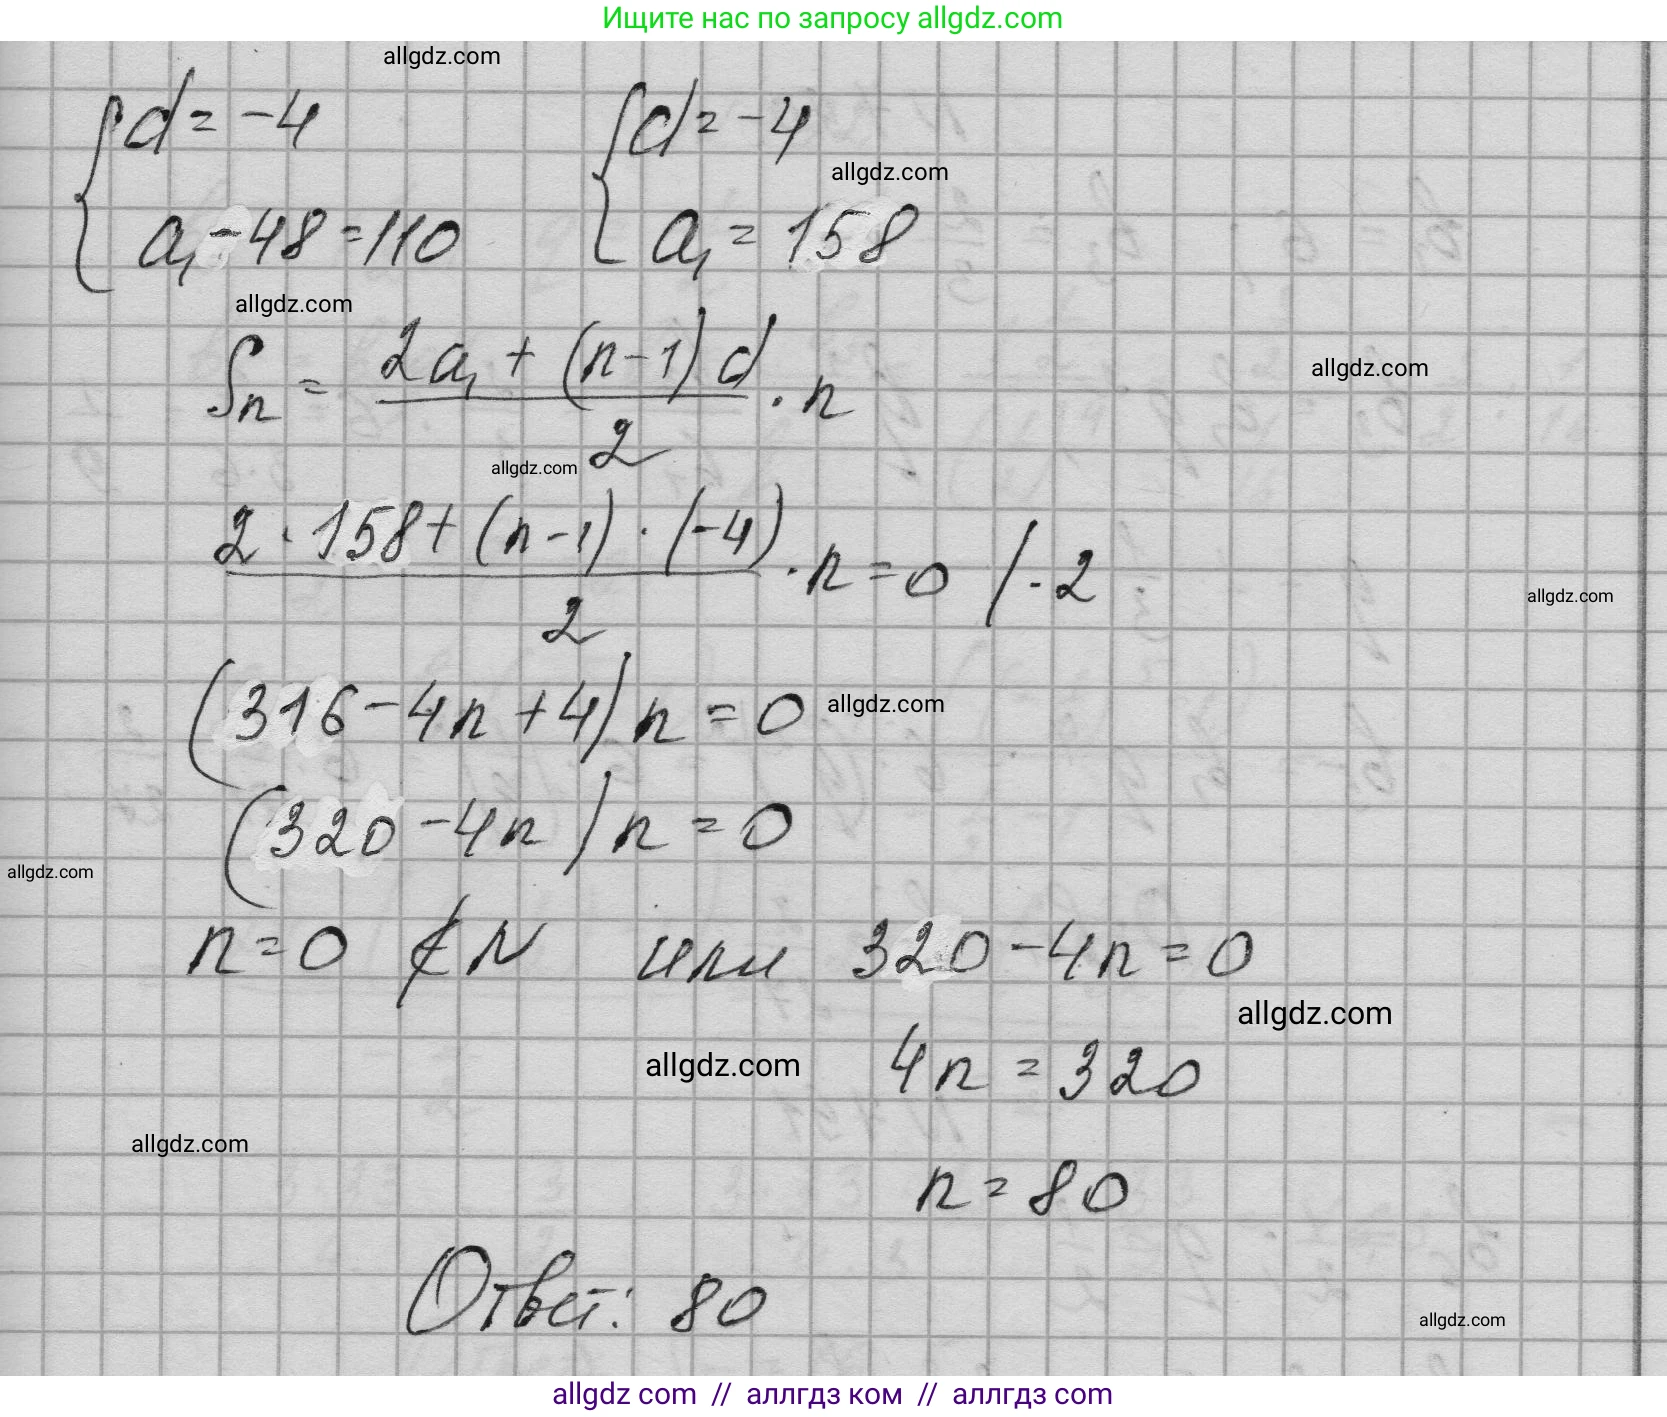 Ищите нас по запросу allgdz.com
allgdz.com
{ d = -4 { d = -4
allgdz.com
a₁ - 48 = 110 a₁ = 158
allgdz.com
Sₙ = (2a₁ + (n-1)d)/2 · n
allgdz.com
allgdz.com
(2 · 158 + (n-1) · (-4))/2 · n = 0 / · 2
allgdz.com
(316 - 4n + 4) n = 0
allgdz.com
(320 - 4n) n = 0
allgdz.com
n = 0 ∉ N или 320 - 4n = 0
allgdz.com
allgdz.com
4n = 320
allgdz.com
n = 80
Ответ: 80
allgdz.com
allgdz com // аллгдз ком // аллгдз com